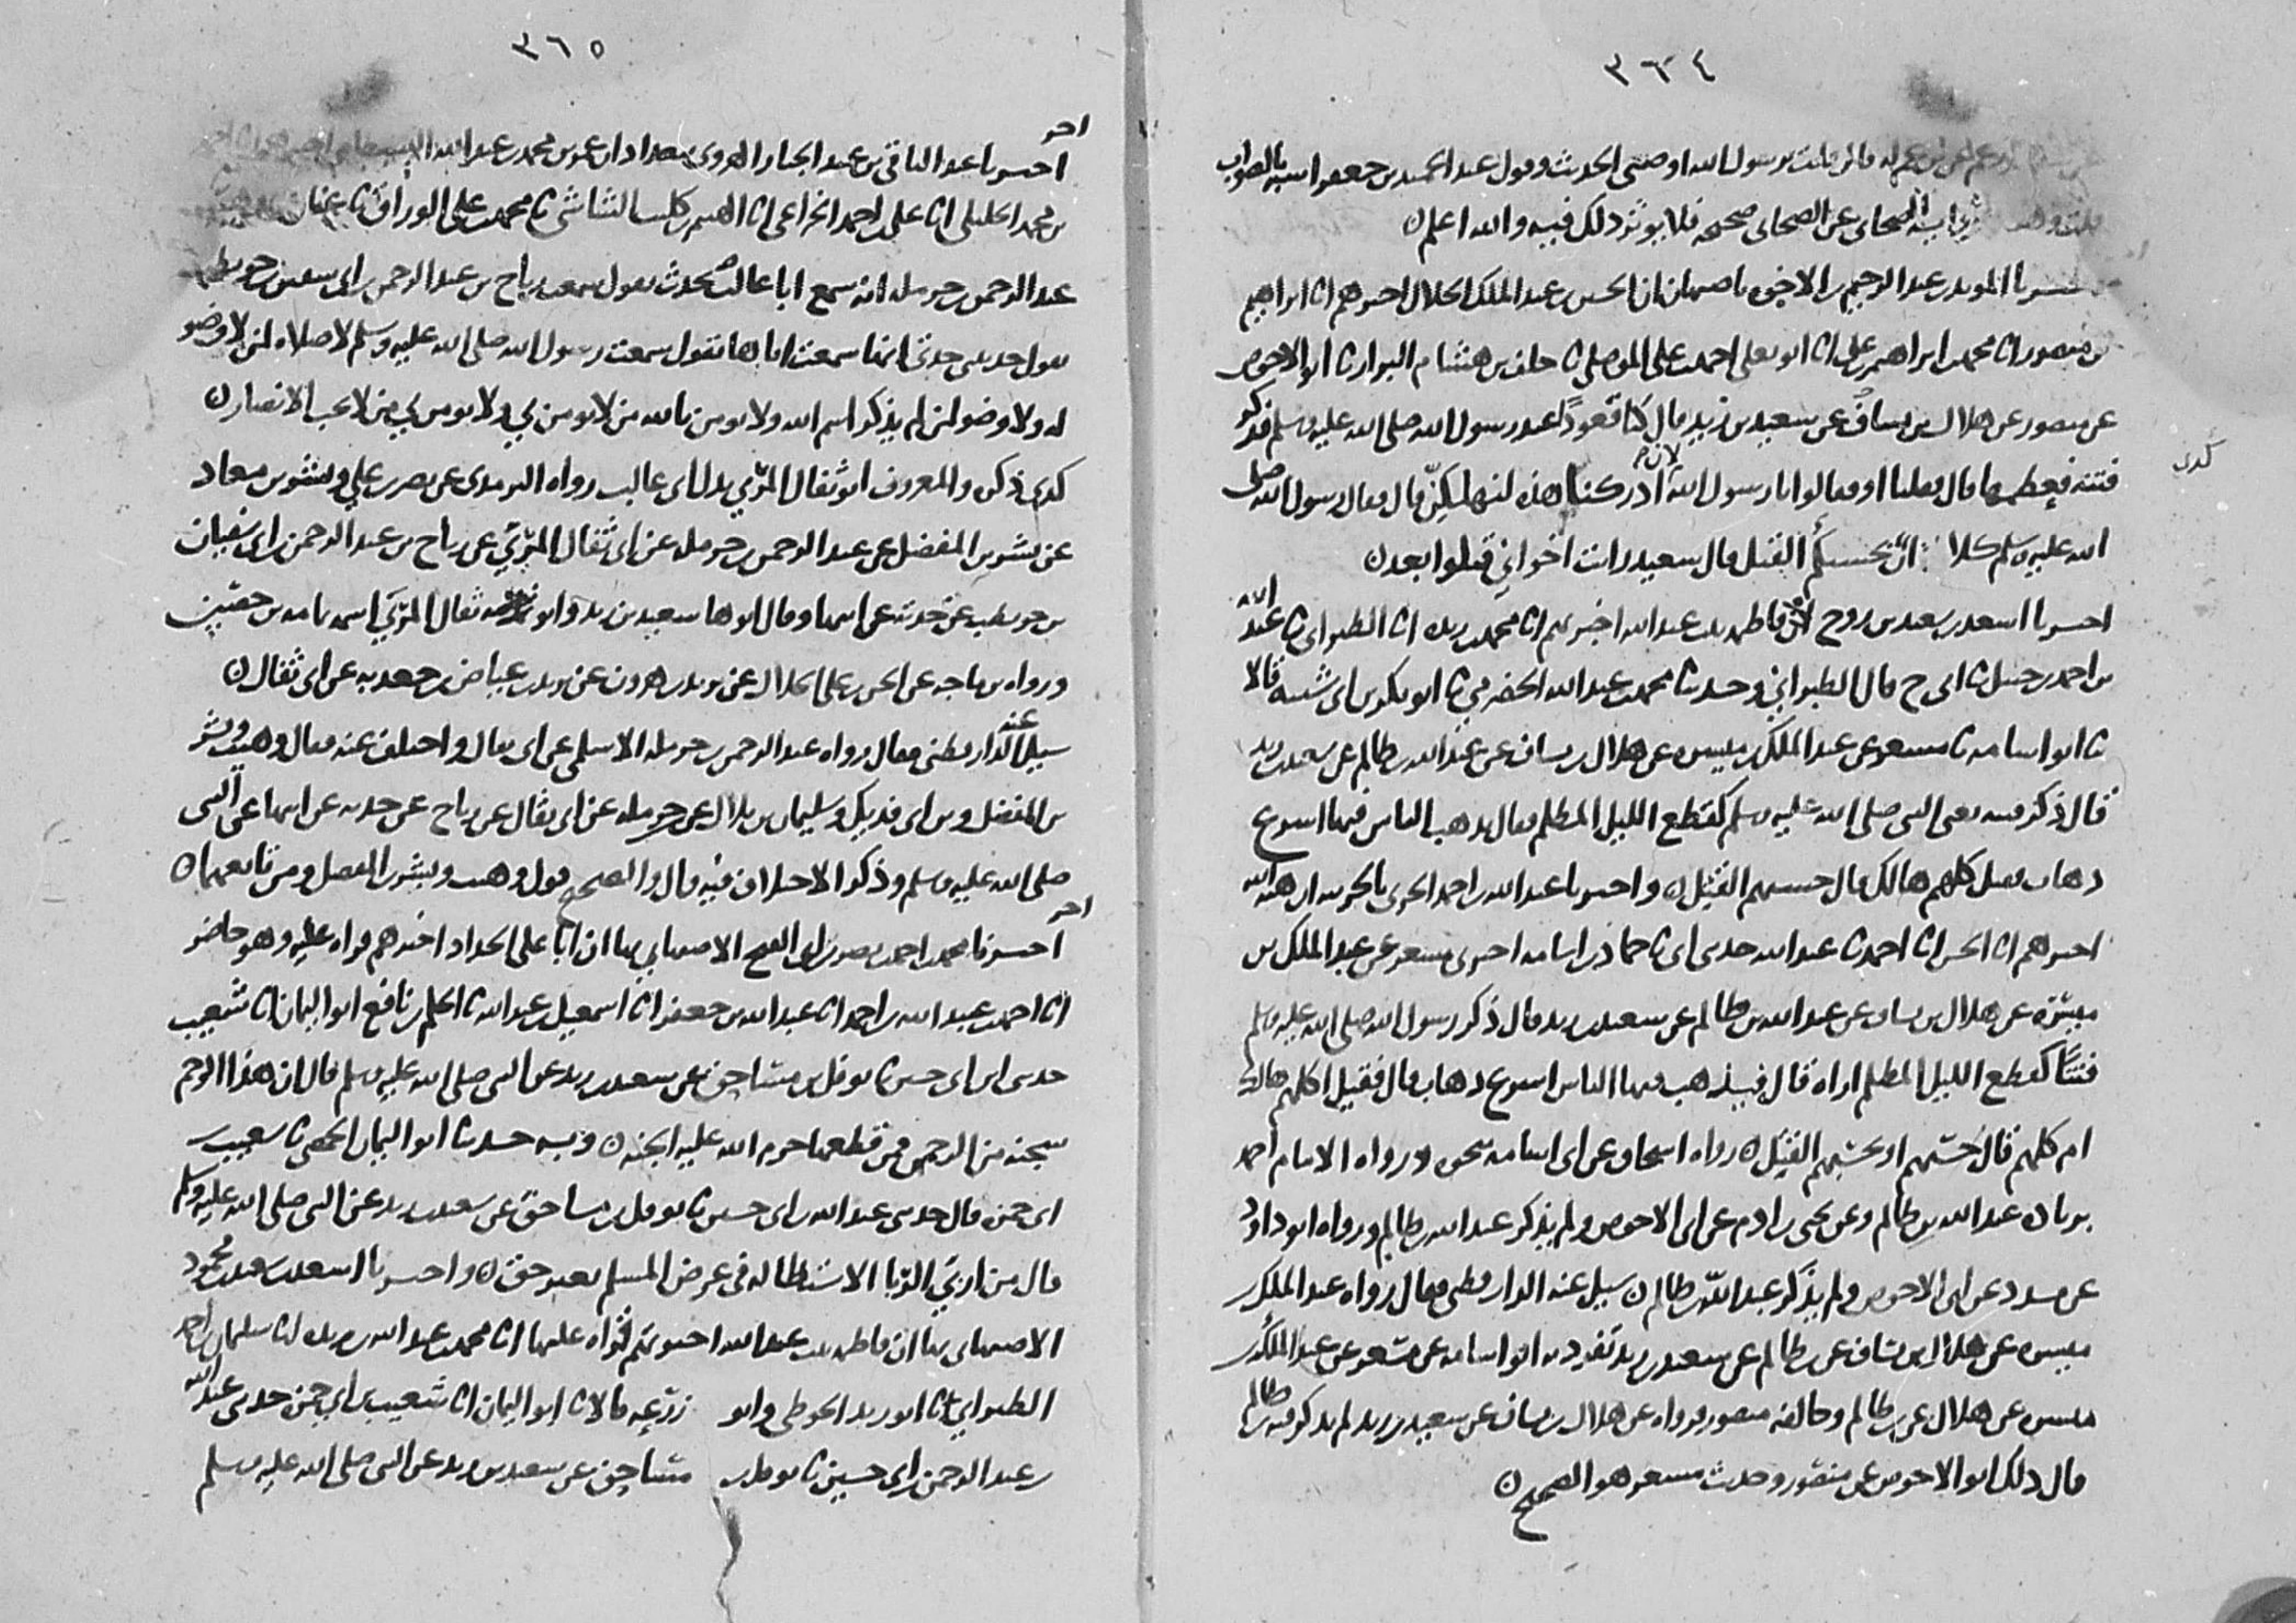 ٣٦٤
قال قلت يرسول الله اوصني الحديث وقول عبد الحميد بن جعفر اشبه بالصواب
الصحابي عن الصحابي صحيحه فلا يوثر ذلك فيه والله اعلم ن
المويد بن عبد الرحيم بن الاخوه باصبهان ان الحسين بن عبد الملك الخلال اخبرهم انا ابراهيم
بن منصور انا محمد بن ابراهيم بن علي انا ابو يعلى احمد بن علي الموصلي ثا خلف بن هشام البزار ثا ابو الاحوص
عن منصور عن هلال بن يساف عن سعيد بن زيد قال كنا قعودًا عند رسول الله صلى الله عليه وسلم فذكر
فتنه فعظمها قال فقلنا او فقالوا يا رسول الله لان ادركنا هذه لنهلكنّ قال فقال رسول الله صلى
كدى
الله عليه وسلم كلا انّ بحسبكم القتل قال سعيد رايت اخواني قتلوا بعد ن
اخبرنا اسعد بن سعيد بن روح ان فاطمه بنت عبد الله اخبرتهم انا محمد بن ريذه انا الطبراني ثا عبد الله
بن احمد بن حنبل ثا ابي ح قال الطبراني وحدثنا محمد بن عبد الله الحضرمي ثا ابو بكر بن ابي شيبه قالا
ثا ابو اسامه ثا مسعر عن عبد الملك بن ميسره عن هلال بن يساف عن عبد الله بن ظالم عن سعيد بن زيد
قال ذكر فتنه يعني النبي صلى الله عليه وسلم كقطع الليل المظلم فقال يذهب الناس فيها اسرع
ذهاب فقيل كلهم هالك قال حسبهم القتل ن واخبرنا عبد الله بن احمد الحربي بالحربيه ان هبه الله
اخبرهم انا الحسن انا احمد ثا عبد الله حدثني ابي ثا حماد بن اسامه اخبرني مسعر عن عبد الملك بن
ميسَرَه عن هلال بن يساف عن عبد الله بن ظالم عن سعيد بن زيد قال ذكر رسول الله صلى الله عليه وسلم
فتنًا كقطع الليل المظلم اراه قال فيذهب فيها الناس اسرع ذهاب قال فقيل اكلهم هالك
ام كلهم قال حَسْبهم او بحَسْبهم القتل ن رواه اسحاق عن ابي اسامه بنحوه ورواه الامام احمد
عبد الله بن ظالم وعن يحيى بن ادم عن ابي الاحوص ولم يذكر عبد الله بن ظالم ورواه ابو داود
عن مسدد عن ابي الاحوص ولم يذكر عبد الله بن ظالم ن سيل عنه الدارقطني فقال رواه عبد الملك بن
ميسره عن هلال بن يساف عن بن ظالم عن سعيد بن زيد تفرد به ابو اسامه عن مسْعر عن عبد الملك بن
ميسره عن هلال عن بن ظالم وخالفه منصور فرواه عن هلال بن يساف عن سعيد بن زيد لم يذكر فيه بن ظالم
قال ذلك ابو الاحوص عن منصور وحديث مسعر هو الصحيح ن
٣٦٥
اخر
اخبرنا عبد الباقي بن عبد الجبار الهروي ببغداد ان عمر بن محمد بن عبد الله البسطامي اخبرهم انا احمد
بن محمد الخليلي انا علي بن احمد الخزاعي انا الهيثم بن كليب الشاشي ثا محمد بن علي الوراق ثا عفان
عبد الرحمن بن حرمله انه سمع ابا غالب يحدث يقول سمعت رباح بن عبد الرحمن بن ابي سفين بن حويطب
يقول حدثتني جدتي انها سمعت اباها يقول سمعت رسول الله صلى الله عليه وسلم لا صلاه لمن لا وضو
له ولا وضو لمن لم يذكر اسم الله ولا يومن بالله من لا يومن بي ولا يومن بي من لا يحب الانصار ن
كدى ذكره والمعروف ابو ثفال المرّي بدل ابي غالب رواه الترمذي عن نصر بن علي وبشر بن معاذ
عن بشر بن المفضل عن عبد الرحمن بن حرمله عن ابي ثفال المرّي عن رباح بن عبد الرحمن بن ابي سفيان
بن حويطب عن جدته عن ابيها وقال ابوها سعيد بن زيد وابو ثفال المرّي اسمه ثمامه بن حصَين
ورواه بن ماجه عن الحسن بن علي الخلال عن يزيد بن هرون عن يزيد بن عياض بن جعدبه عن ابي ثفال ن
سيل عنه الدارقطني فقال رواه عبد الرحمن بن حرمله الاسلمي عن ابي ثفال واختلف عنه فقال وهيب وبشر
بن المفضل وبن ابي فديك وسليمان بن بلال عن بن حرمله عن ابي ثفال عن رباح عن جدته عن ابيها عن النبي
صلى الله عليه وسلم وذكر الاختلاف فيه قال والصحيح قول وهيب وبشر بن المفضل ومن تابعهما ن
اخر
اخبرنا محمد بن احمد بن نصر بن ابي الفتح الاصبهاني بها ان ابا علي الحداد اخبرهم قراه عليه وهو حاضر
انا احمد بن عبد الله بن احمد انا عبد الله بن جعفر انا اسمعيل بن عبد الله ثا الحكم بن نافع ابو اليمان انا شعيب
حدثني ابن ابي حسين ثا نوفل بن مساحق عن سعيد بن زيد عن النبي صلى الله عليه وسلم قال ان هذا الرحم
سجنه من الرحمن فمن قطعها حرم الله عليه الجنه ن وبه حدثنا ابو اليمان الحمصي ثا شعيب بن
ابي حمزه قال حدثني عبد الله بن ابي حسين ثا نوفل بن مساحق عن سعيد بن زيد عن النبي صلى الله عليه وسلم
قال من اربَى الرِّبا الاستطاله في عرض المسلم بغير حق ن واخبرنا اسعد بن سعيد بن محمود
الاصبهاني بها ان فاطمه بنت عبد الله اخبرتهم قراه عليها انا محمد بن عبد الله بن ريذه انا سليمان بن احمد
الطبراني ثا ابو زيد الحوطي وابو زرْعه قالا ثا ابو اليمان انا شعيب بن ابي حمزه حدثني عبد الله
بن عبد الرحمن بن ابي حسين ثا نوفل بن مساحق عن سعيد بن زيد عن النبي صلى الله عليه وسلم